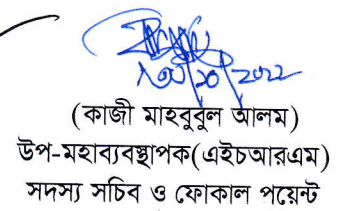 ১৩/১০/২০২২
(কাজী মাহবুবুল আলম)
উপ-মহাব্যবস্থাপক(এইচআরএম)
সদস্য সচিব ও ফোকাল পয়েন্ট